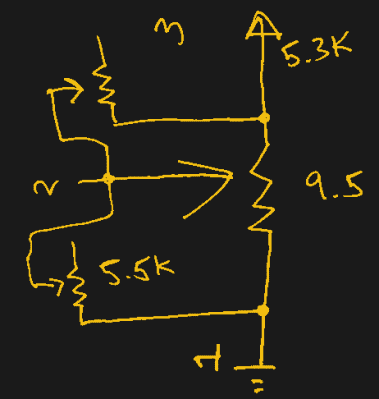 3
5.3K
9.5
2
5.5K
1